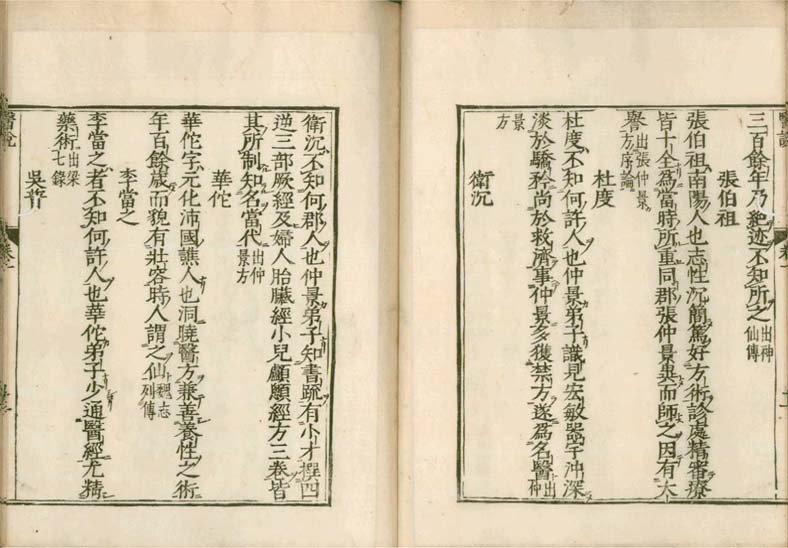 三百餘年乃絶迹不知所之出神仙傳
張伯祖
張伯祖南陽人也志性沉簡篤好方術診處精審療
皆十全為當時所重同郡張仲景異而師之因有大
譽出張仲景方序論
杜度
杜度不知何許人也仲景弟子識見宏敏器宇沖深
淡於驕矜尚於救濟事仲景多獲禁方遂為名醫出仲
景方
衛沉
衛沉不知何郡人也仲景弟子知書疏有小才撰四
逆三部厥經及婦人胎臟經小兒顱顖經方三卷皆
其所制知名當代出仲景方
華佗
華佗字元化沛國譙人也洞曉醫方兼善養性之術
年百餘歲而貌有壯容時人謂之仙魏志列傳
李當之
李當之者不知何許人也華佗弟子少通醫經尤精
藥術出梁七錄
吳普
醫說